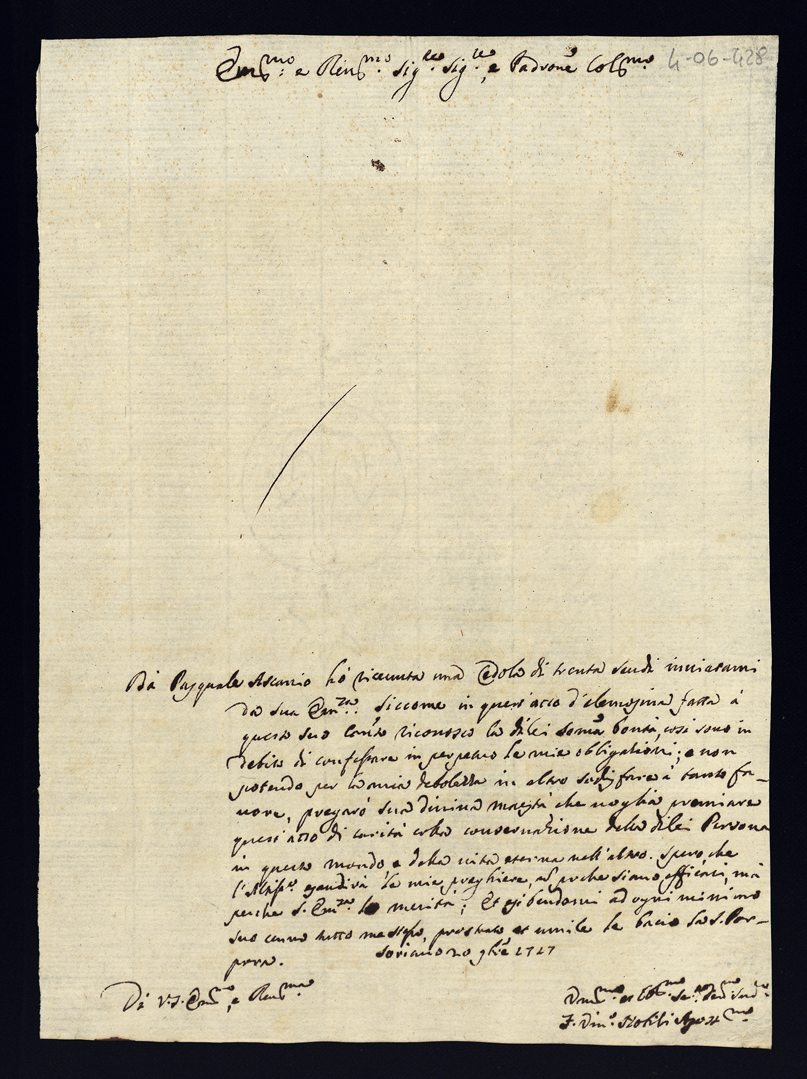 Em.mo e Rev.mo Sig.re Sig.re, e Padrone Col.mo 4-06-428
Dà Pasquale Ascanio hò ricevuta una Cedola di trenta scudi inviatami
da sua Em.za. Siccome in quest'atto d'elemosina fatta à
questo suo riconosco la dilei somã bontà, così sono in
debito di confessare in perpetuo le mie obligationi; e non
potendo per la mia debolezza in altro sodisfare à tanto fa-
vore, pregarò sua divina maestà che voglia premiare
quest'atto di carità colla conservatione della dilei Persona
in questo mondo e della vita eterna nell'altro. Spero, che
l'Altiss.o esaudirà le mie preghiere, nõ perche siano efficaci, mà
perche S. Em.za lo merita; Et esibendomi ad ogni minimo
suo cenno tutto me stesso, prostrato et umile le bacio la S. Por-
pora. Soriano 20 1727
Di V.S. Em.mo, e Rev.ma